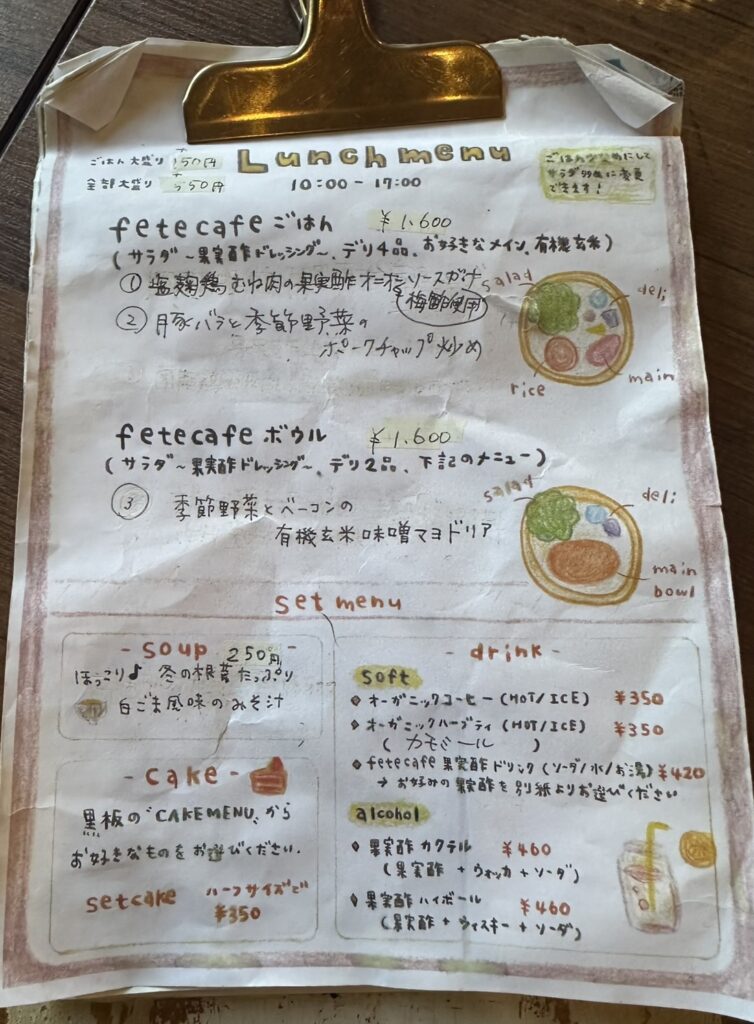 ごはん大盛り +150円
全部大盛り +350円
Lunch menu
10:00 - 17:00
ごはん少なめにして
サラダ多めに変更
できます!
fete cafe ごはん ¥1,600
(サラダ~果実酢ドレッシング~、デリ4品、お好きなメイン、有機玄米)
① 塩麹鶏むね肉の果実酢オニオンソースがけ
梅酢使用
② 豚バラと季節野菜の
ポークチャップ炒め
salad
deli
rice
main
fete cafe ボウル ¥1,600
(サラダ~果実酢ドレッシング~、デリ2品、下記のメニュー)
③ 季節野菜とベーコンの
有機玄米味噌マヨドリア
salad
deli
main
bowl
set menu
- soup 250円 -
ほっこり♪ 冬の根菜たっぷり
白ごま風味のみそ汁
- cake -
黒板の"CAKE MENU"から
お好きなものをお選びください.
set cake ハーフサイズで
¥350
- drink -
soft
◆ オーガニックコーヒー (HOT/ICE) ¥350
◆ オーガニックハーブティ (HOT/ICE) ¥350
( カモミール )
◆ fetecafe 果実酢ドリンク (ソーダ/水/お湯) ¥420
→ お好みの果実酢を別紙よりお選びください
alcohol
◆ 果実酢カクテル ¥460
(果実酢 + ウォッカ + ソーダ)
◆ 果実酢ハイボール ¥460
(果実酢 + ウィスキー + ソーダ)